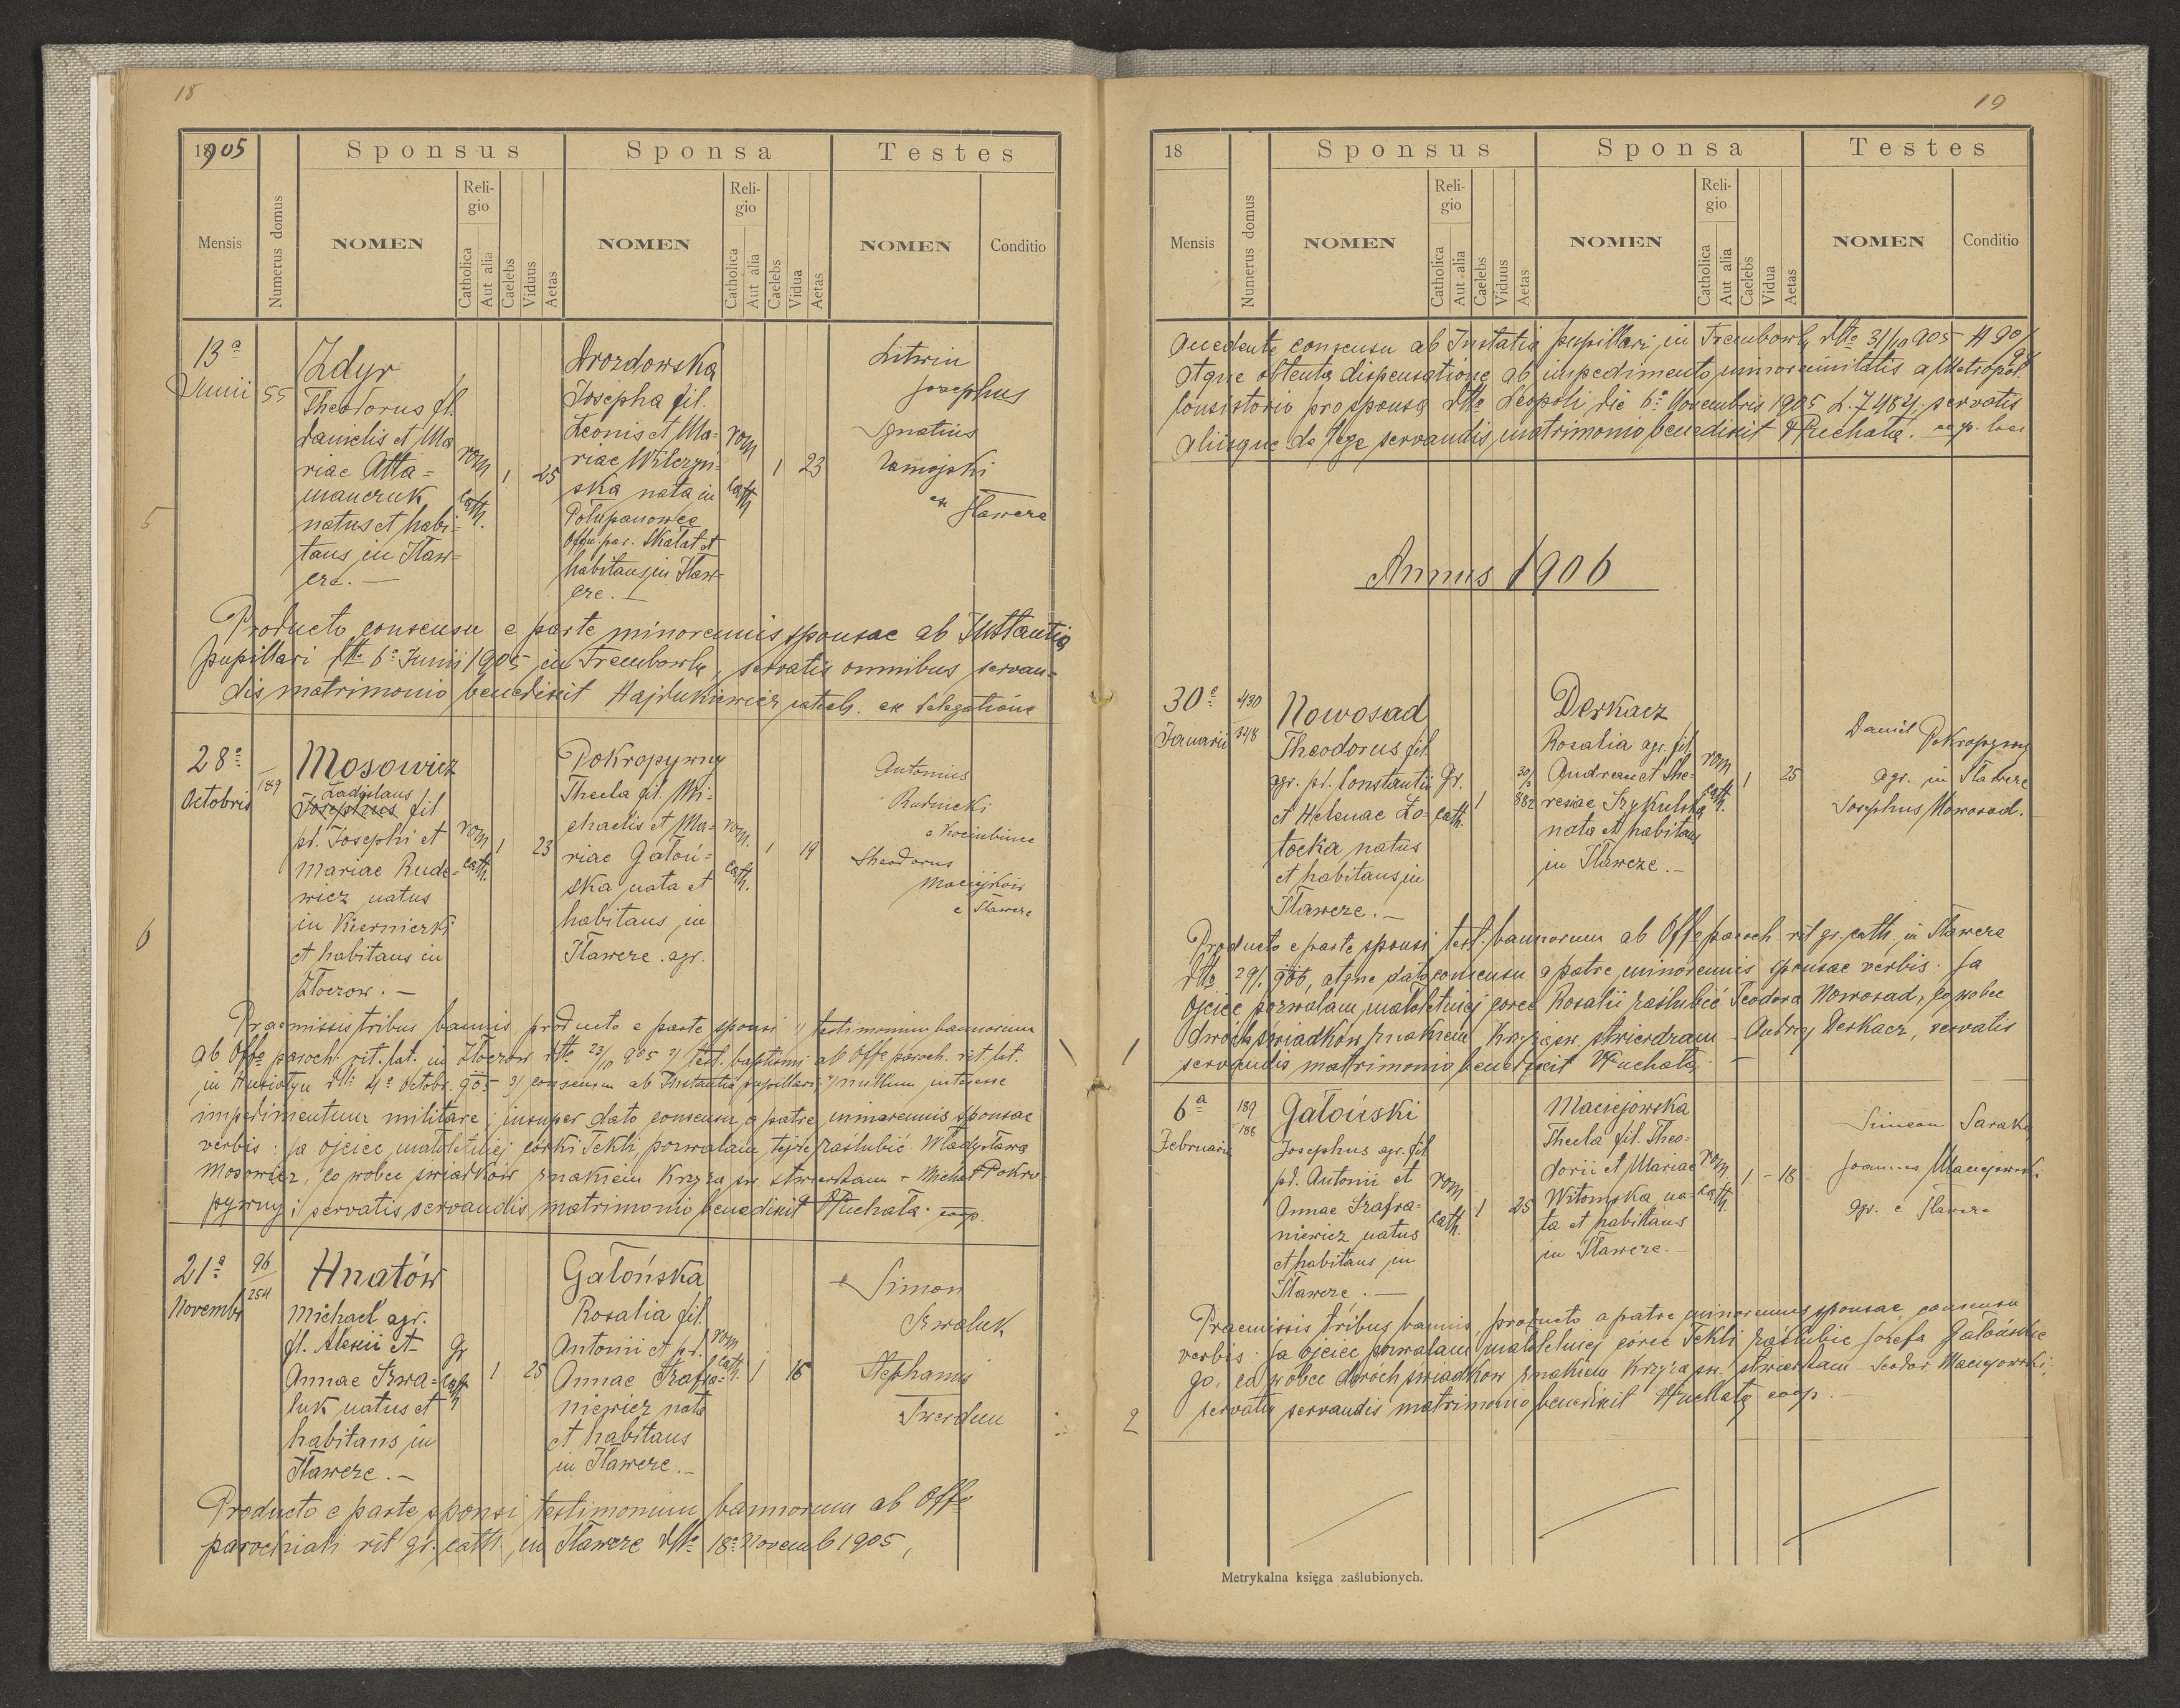 18
1905
Sponsus
Sponsa
Testes
Mensis
Numerus domus
NOMEN
Religio
Catholica
Aut alia
Caelebs
Viduus
Aetas
NOMEN
Religio
Catholica
Aut alia
Caelebs
Vidua
Aetas
NOMEN
Conditio
13a
Junii
55
Zdyr
Theodorus fil.
Danielis et Ma
riae Atta=
manczuk
natus et habi=
tans in Iław=
cze. —
rom
cath.
1
25
Drozdowska
Josepha fil.
Leonis et Ma=
riae Wilczyń=
ska nata in
Połupanowce
Offu. par. Skałat et
habitans in Iław=
cze. —
rom
cath
1
23
Litwin
Josephus
Ignatius
Zamojski
ex Iławcze
5
Producto consensu e parte minorennis sponsae ab Instantia
pupillari dtto 6o Junii 1905 in Trembowla, servatis omnibus servan=
dis matrimonio benedixit Hajdukiewicz catech. ex delegatione
28a
Octobris
189
Mosowicz
Ladislaus
Josephus fil
pd. Josephi et
Mariae Rude=
wicz natus
in Kierniczki
et habitans in
Złoczow. —
rom
cath.
1
23
Pokropywny
Thecla fil. Mi=
chaelis et Ma=
riae Gałoń=
ska nata et
habitans in
Iławcze. agr.
rom.
cath.
1
19
Antonius
Rudnicki
e Kociubince
Theodorus
Maciejków
e Iławcze
6
Praemissis tribus bannis producto e parte sponsi 1/ testimonium bannorum
ab Offo paroch. rit. lat. in Złoczow dtto 23/10 905 2/ test. baptismi ab Offo paroch. rit. lat.
in Husiatyn dtto 4o Octobr. 905 3/ consensum ab Instantia pupillari; 4/ nullum interesse
impedimentum militare; insuper dato consensu a patre minorennis sponsae
verbis: Ja ojciec małoletniej córki Tekli pozwalam tejże zaślubić Władysława
Mosowicz, co wobec świadków znakiem krzyża św. stwierdzam + Michał Pokro=
pywny; servatis servandis matrimonio benedixit Puchała. coop.
21a
Novembr
96
254
Hnatów
Michael agr.
fil. Alexii et
Annae Kwa=
luk natus et
habitans in
Iławcze. —
gr
cath
1
25
Gałońska
Rosalia fil.
Antonii et pd.
Annae Szafra=
niewicz nata
et habitans
in Iławcze. —
rom
cath.
1
16
Simon
Kwaluk
Stephanus
Twerdun
Producto e parte sponsi testimonium bannorum ab Offo
parochiali rit gr. cath in Iławcze dtto 18o Novemb 1905,
19
18
Sponsus
Sponsa
Testes
Mensis
Numerus domus
NOMEN
Religio
Catholica
Aut alia
Caelebs
Viduus
Aetas
NOMEN
Religio
Catholica
Aut alia
Caelebs
Vidua
Aetas
NOMEN
Conditio
accedente consensu ab Instatia pupillari in Trembowla dtto 31/10 905
atque obtenta dispensatione ab impedimento minorennitatis a Metropol.
Consistorio pro sponsa dtto Leopoli die 6o Novembris 1905 L. 7484. servatis
aliisque de lege servandis matrimonio benedixit Puchała. coop. loci
Annus 1906
30a
Januarii
430
348
Nowosad
Theodorus fil.
agr. pd. Constantii
et Helenae Zo=
tocka natus
et habitans in
Iławcze. —
gr.
cath.
1
30/3
882
Derkacz
Rosalia agr. fil
Andreae et The=
resiae Szykulska
nata et habitans
in Iławcze. —
rom
cath.
1
25
Daniel Pokropywny
agr. in Iławcze
Josephus Nowosad.
Producto e parte sponsi test. bannorum ab Offo paroch. rit gr. cath. in Iławcze
dtto 29/1 906, atque dato consensu a patre minorennis sponsae verbis: Ja
Ojciec pozwalam małoletniej córce Rosalii zaślubić Teodora Nowosad, co wobec
dwóch świadków znakiem krzyża św. stwierdzam — Andrzej Derkacz, servatis
servandis matrimonio benedixit Puchała. —
1
6a
Februarii
189
188
Gałoński
Josephus agr. fil
pd. Antonii et
Annae Szafra=
niewicz natus
et habitans in
Iławcze. —
rom
cath.
1
25
Maciejowska
Thecla fil. Theo=
dorii et Mariae
Witomska na=
ta et habitans
in Iławcze. —
rom
cath.
1 - 18
Simeon Saraka
Joannes Maciejowski
agr. e Iławcze
Praemissis tribus bannis, producto a patre minorennis sponsae consensu
verbis: Ja ojciec pozwalam małoletniej córce Tekli zaślubić Józefa Gałońskie
go, co wobec dwóch świadków znakiem krzyża św. stwierdzam — Teodor Maciejowski;
servatis servandis matrimonio benedixit Puchała coop. —
2
Metrykalna księga zaślubionych.